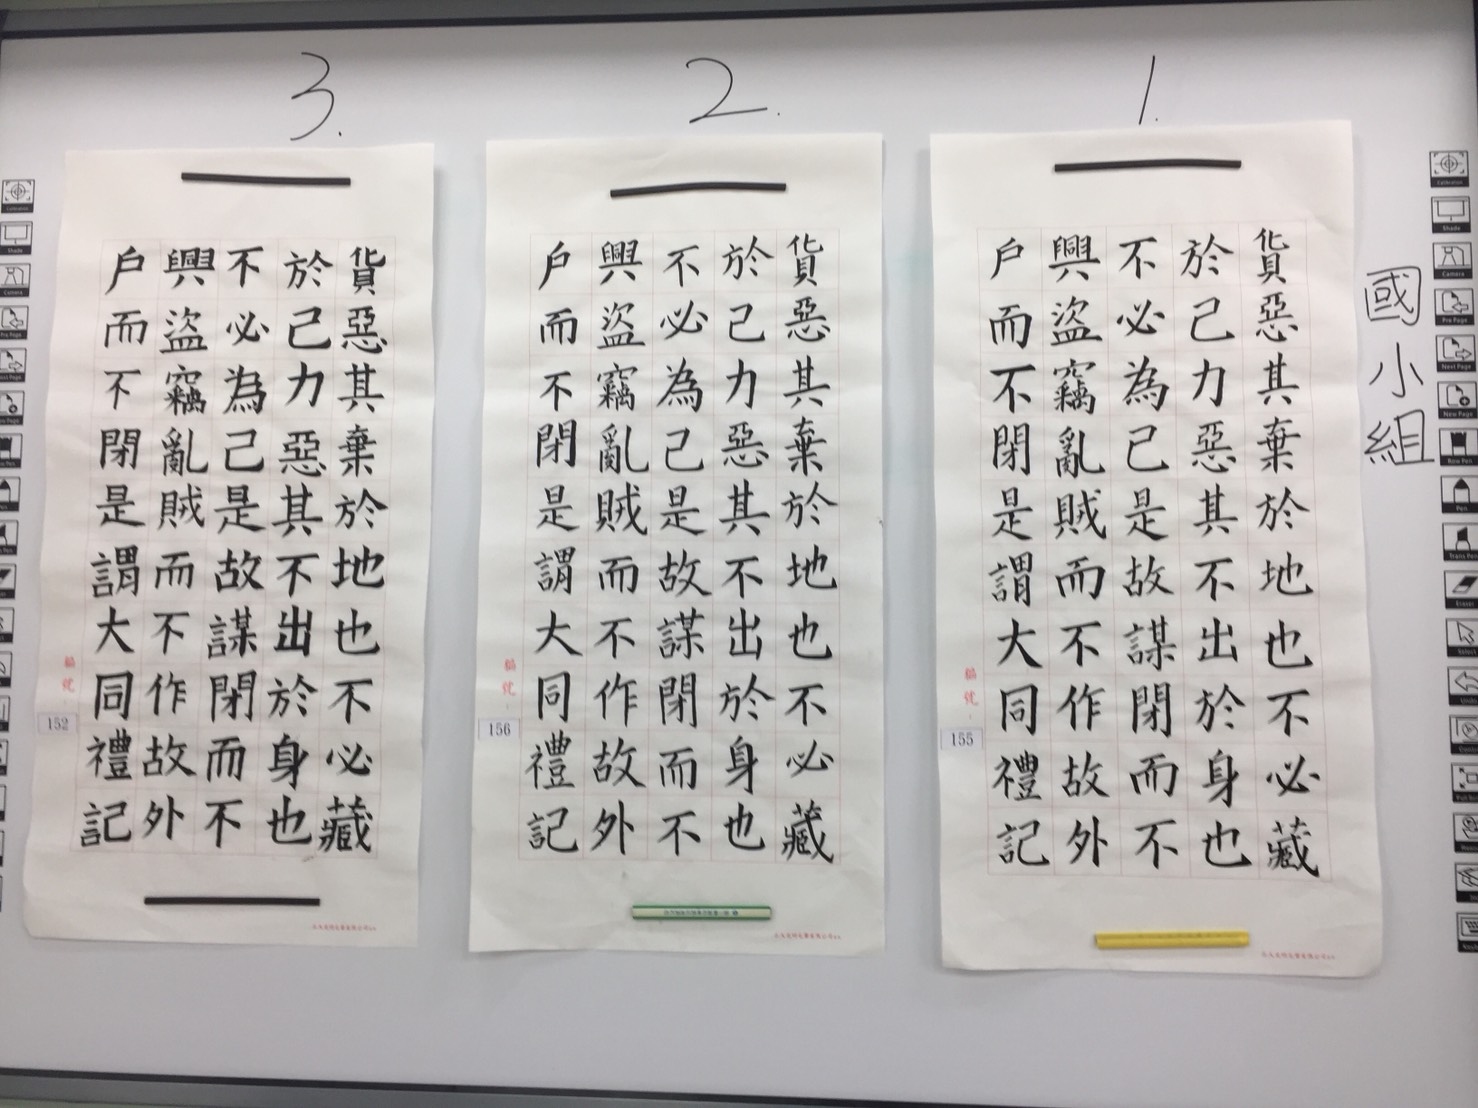 國小組
1.
貨惡其棄於地也不必藏
於己力惡其不出於身也
不必為己是故謀閉而不
興盜竊亂賊而不作故外
戶而不閉是謂大同禮記
編號
155
2.
貨惡其棄於地也不必藏
於己力惡其不出於身也
不必為己是故謀閉而不
興盜竊亂賊而不作故外
戶而不閉是謂大同禮記
編號
156
3.
貨惡其棄於地也不必藏
於己力惡其不出於身也
不必為己是故謀閉而不
興盜竊亂賊而不作故外
戶而不閉是謂大同禮記
編號
152
Calibration
Shade
Camera
Pre Page
Next Page
New Page
Row Pen
Pen
Trans Pen
Eraser
Select
Undo